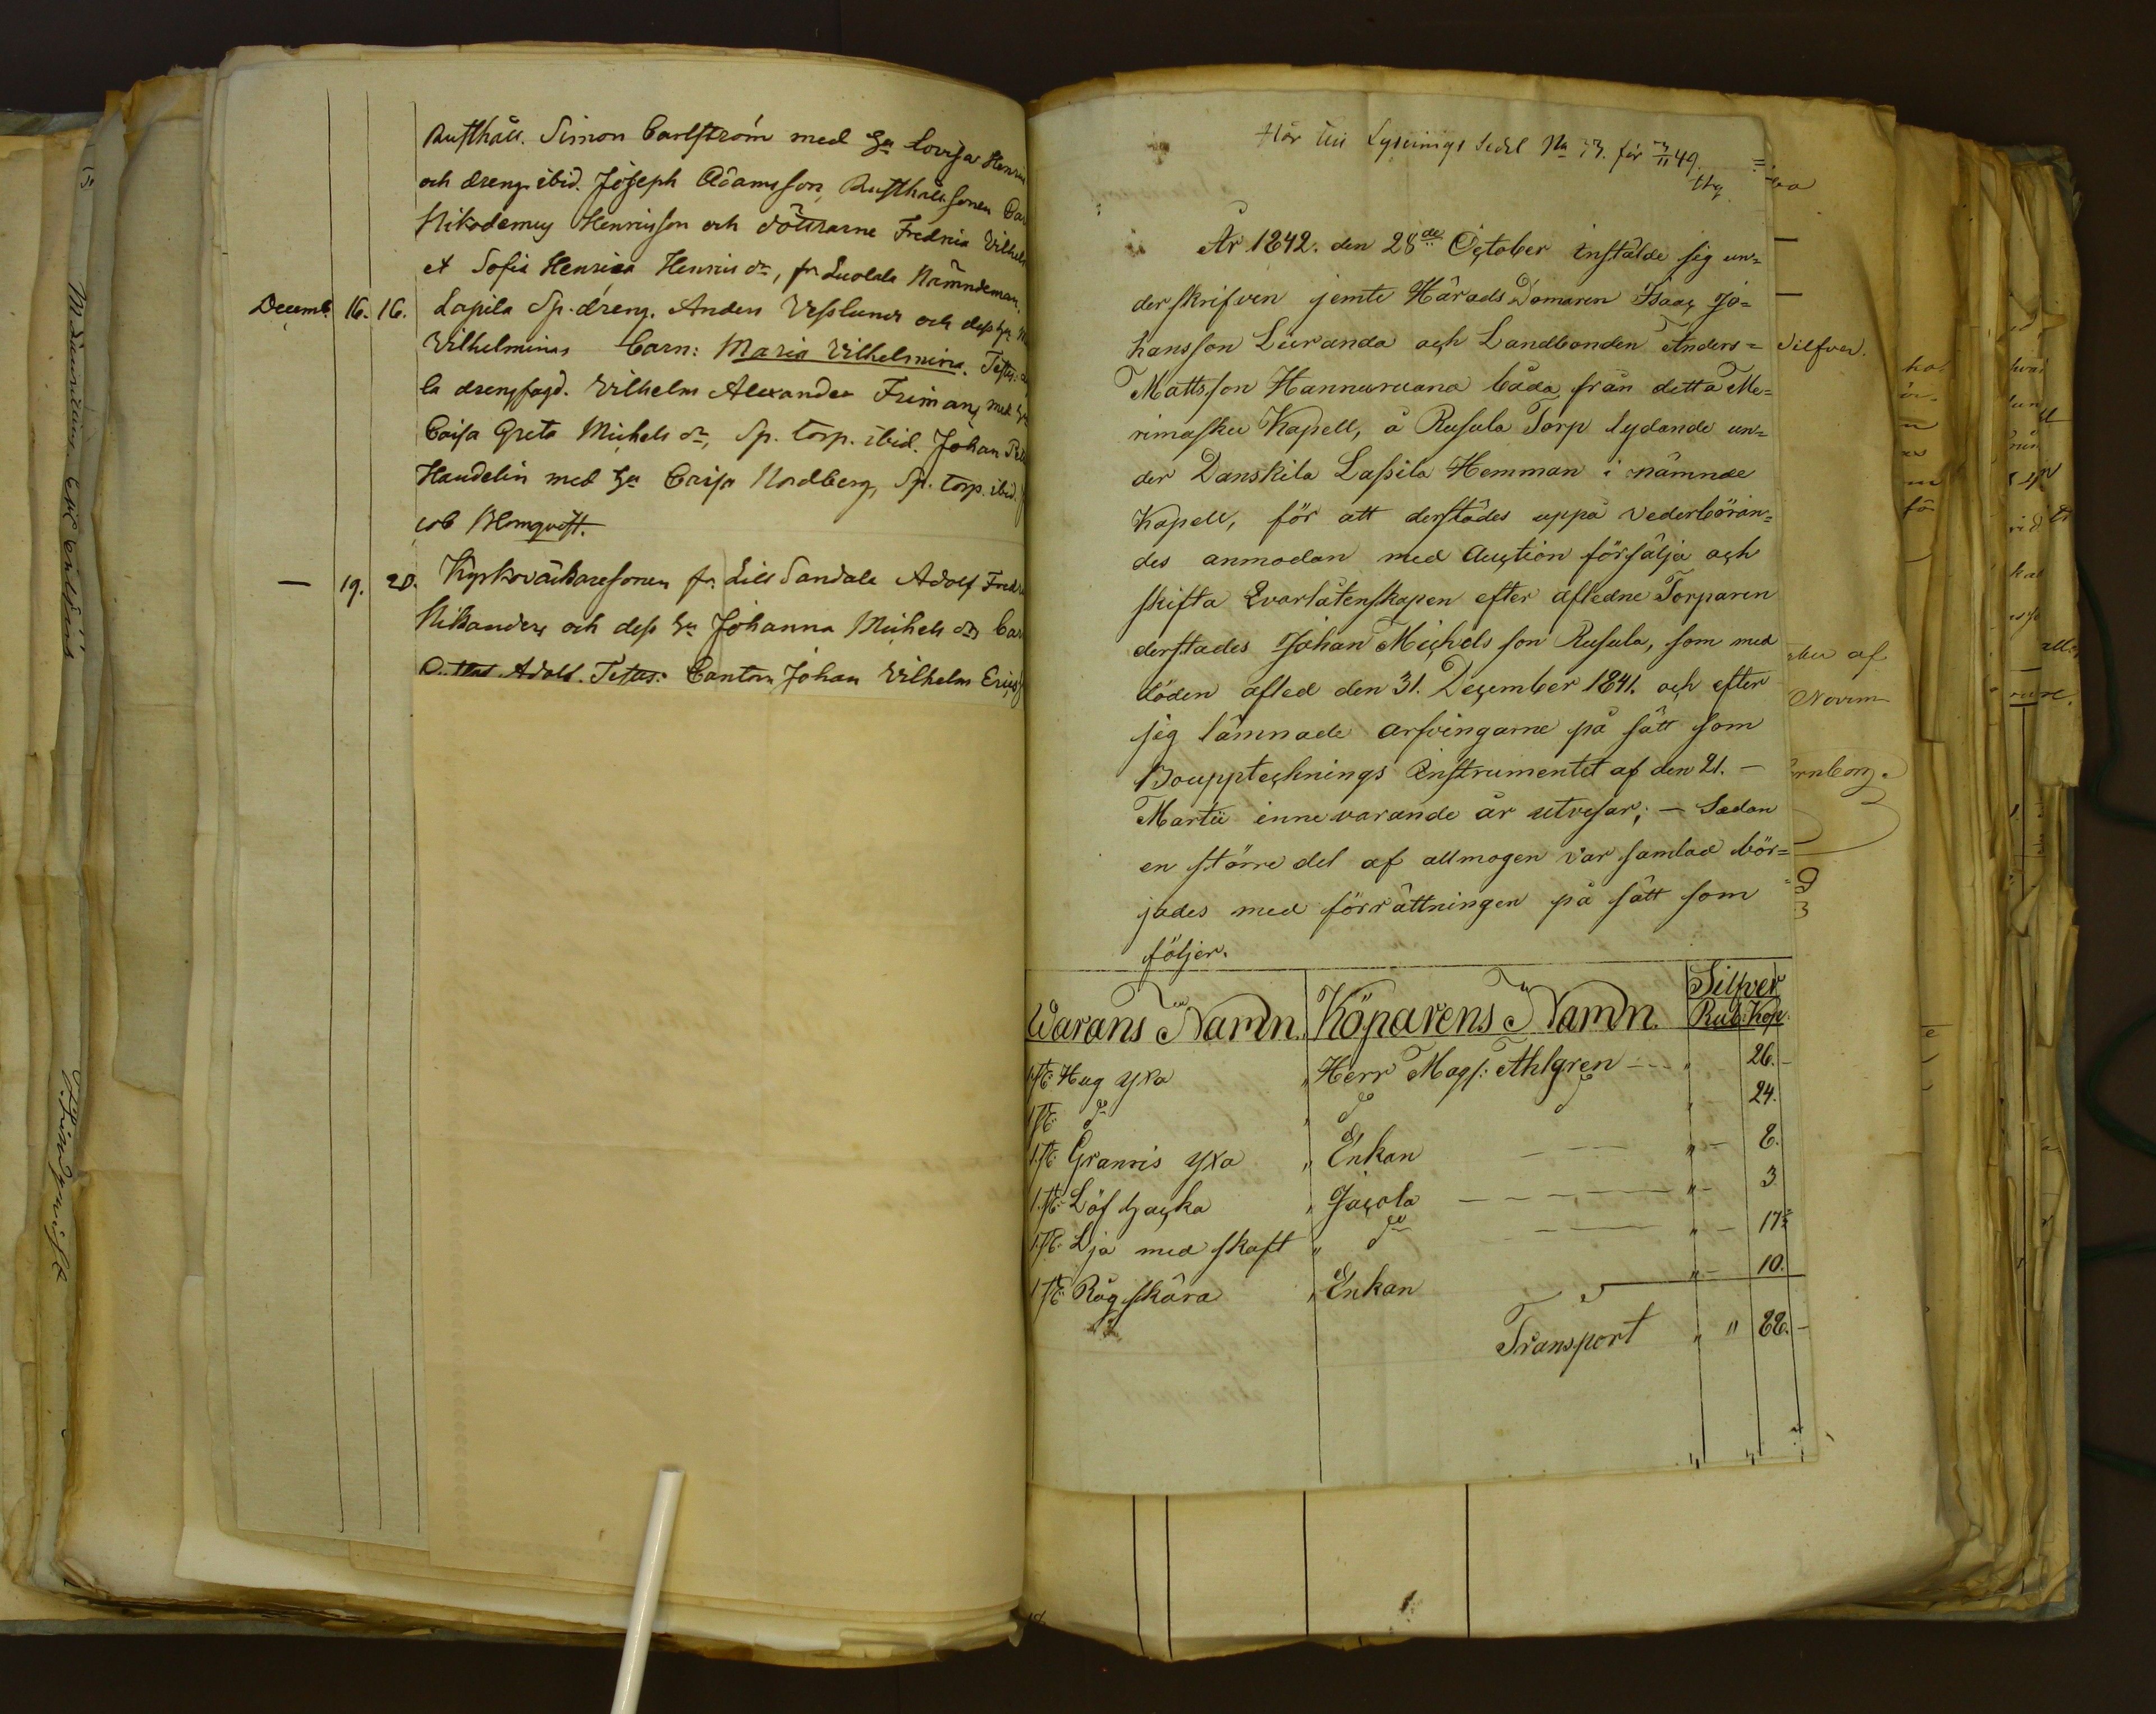 Rusthåll. Simon Carlström med Hu Lovisa Henrics
och dreng. ibid. Joseph Adamsson, Rusthåll. sonen
Nikodemus Henricsson och döttrarne Fredrica Vilhel
et Sofia Henrica Henricsdr, fr. Luolala Nämndeman.
Decemb. 16. 16. Lapila Sp. dreng. Anders Vesslund och dess hu
Vilhelminas barn: Maria Vilhelmina. Testes:
la drengfogd. Vilhelm Alexander Friman, med hu
Caisa Greta Michelsdr, Sp. torp. ibid. Johan
Handelin med hu Caisa Nordberg, Sp. torp. ibid.
cob Blomqvist.
— 19. 20. Kyrkoväktaresonen fr. Lill Sandala Adolf Fredr
Nikanders och dess hu Johanna Michelsdrs
Adolf. Testes: Cantorn Johan Vilhelm
Hör till Lysnings Sedel No 73. för
År 1842. den 28de October instälde sig un=
derskrifven jemte Härads Domaren Isaac Jo=
hansson Liuranda och Landbonden Anders=
Mattsson Hannuruana båda från detta Me=
rimasku Kapell, å Rusula Torp lydande un=
der Danskila Lassila Hemman i nämnde
Kapell, för att derstädes uppå vederbörän=
des anmodan med Auction försälja och
skifta Qvarlåtenskapen efter afledne Torparen
derstädes Johan Michelsson Rusula, som med
döden afled den 31. December 1841. och efter
sig lämnade arfvingarne på sätt som
Boupptecknings Instrumentet af den 21. —
Martii innevarande år utvisar; — Sedan
en större del af allmogen var samlad bör=
jades med förrättningen på sätt som
följer.
Silfver
Warans Namn. Köparens Namn. Rub. Kop.
1 st: Hug yxa " Herr Mags: Ahlgren — " 26. —
1 st: do " do do " 24.
1 st: Grannis yxa " Enkan — " — 8.
1 st: Löf hacka " Jacola — " — 3
1 st: Lja med skaft " do — " — 17
1 st: Råg skära " Enkan " — 10.
Transport " " 88. —
Silfver.
af
Novem